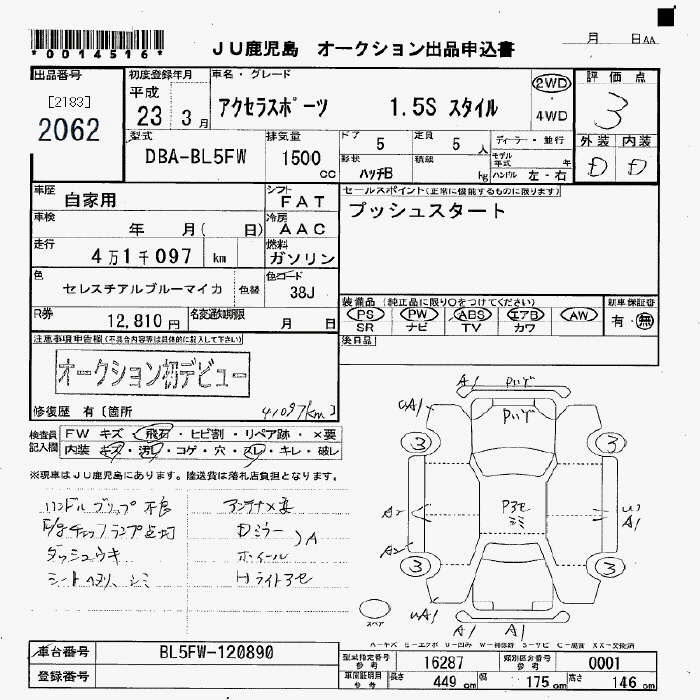 *0014516*
JU鹿児島 オークション出品申込書
月 日AA
出品番号
[2183]
2062
初度登録年月
平成
23 3月
車名・グレード
アクセラスポーツ 1.5S スタイル
2WD
4WD
評価点
3
外装 内装
D D
型式
DBA-BL5FW
排気量
1500
cc
ドア 5
定員 5 人
形状 ハッチB
積載 kg
ディーラー・並行
モデル年式 年
ハンドル 左・右
車歴 自家用
シフト FAT
車検 年 月( 日)
冷房 AAC
走行 4万1千097 km
燃料 ガソリン
色 セレスチアルブルーマイカ
色替
色コード 38J
R券 12,810円
名変通知期限 月 日
セールスポイント(正常に機能するものに限ります)
プッシュスタート
装備品 (純正品に限り○をつけてください)
PS PW ABS エアB AW
SR ナビ TV カワ
新車保証書
有・無
後日品
注意事項申告欄(不具合内容等は具体的に記入して下さい)
オークション初デビュー
修復歴 有〔箇所
41097km
検査員記入欄
FW キズ・飛石・ヒビ割・リペア跡・×要
内装・キズ・汚れ・コゲ・穴・スレ・キレ・破レ
※現車はJU鹿児島にあります。陸送費は落札店負担となります。
ハンドル グリップ 不良
アンテナ×要
Dミラー
ダッシュウキ
ホイール
A
シートヘタリ、シミ
Hライト
A1
A1
3
3
シミ
A2
A2
A1
3
3
A1
A1
スペア
A-キズ
車台番号 BL5FW-120890
登録番号
型式指定番号 参考 16287
類別区分番号 参考 0001
車両証明用 参考
長さ 449 cm
幅 175 cm
高さ 146 cm